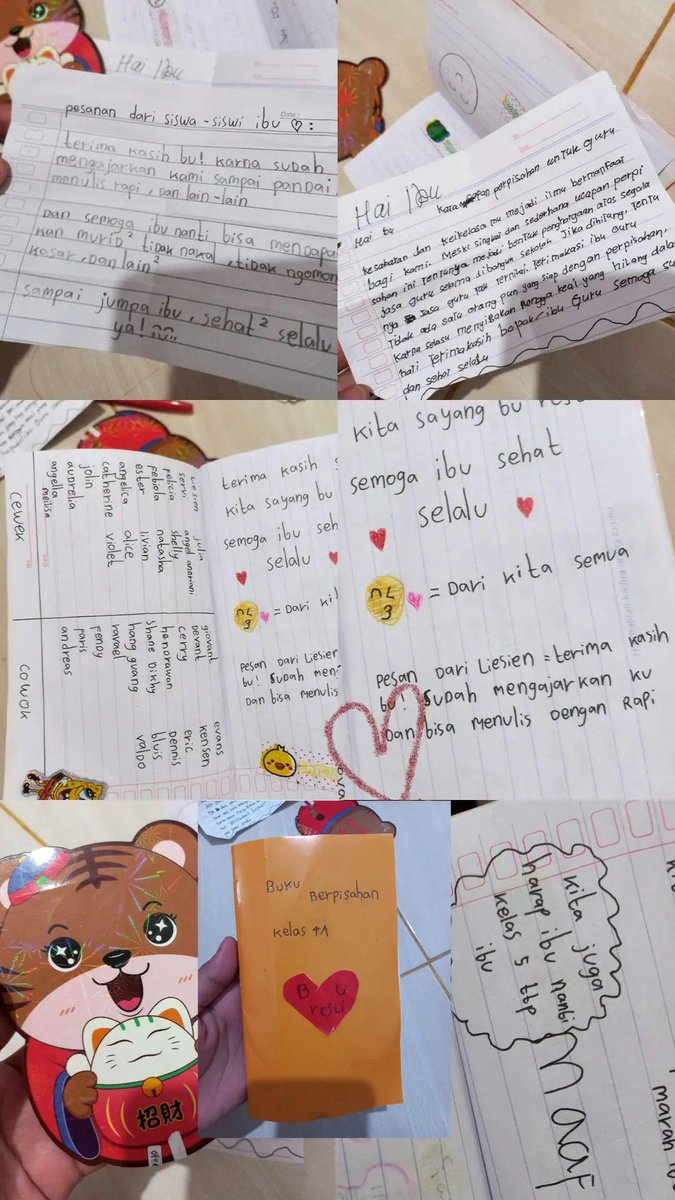 Hai Ibu
pesanan dari siswa-siswi ibu ♡ :
terima kasih bu! karna sudah
mengajarkan kami sampai pandai
menulis rapi, dan lain-lain
Dan semoga ibu nanti bisa mendapa
kan murid² tidak nakal, tidak ngomon
kasar, Dan lain²
sampai jumpa ibu, sehat² selalu
ya!
Hai Ibu
perpisahan untuk guru
Hai bu
kesabaran dan keikhlasan mu mejadi ilmu bermanfaat
bagi kami. Meski singkat dan sederhana ucapan perpi
sahan ini tentunya bentuk penghargaan atas segala
jasa guru selama dibangku sekolah Jika dihitung, tentu
nya jasa guru tak ternilai Terimakasi ibu Guru
Tidak ada satu orang pun yang siap dengan perpisahan,
karna selalu menyisakan rongga kecil yang hilang dala
hati Terimakasih bapak/ibu Guru semoga su
dan sehat selalu
cewek
Liesien
servi
felicia
pebiola
ester
angelica
catherine
jolin
aurelia
angella
julia
angel anoriani
shelly
natasha
livian
alice
violet
meilisa
cowok
giovant
Devant
cerry
hendrawan
Shane Dikhy
hang guang
ravael
fendy
paris
andreas
evans
kensen
eric
Dennis
bluis
valdo
terima kasih
kita sayang bu
semoga ibu seh
selalu
= Dari ki
pesan Dari Liesien
bu! sudah men
Dan bisa menulis
kita sayang bu
semoga ibu sehat
selalu
= Dari kita semua
pesan Dari Liesien = terima kasih
bu! sudah mengajarkan ku
Dan bisa menulis dengan rapi
招財
Buku
Berpisahan
kelas
Bu
resti
kita juga
harap ibu nanti
kelas 5 ttp
ibu
Maaf
marah